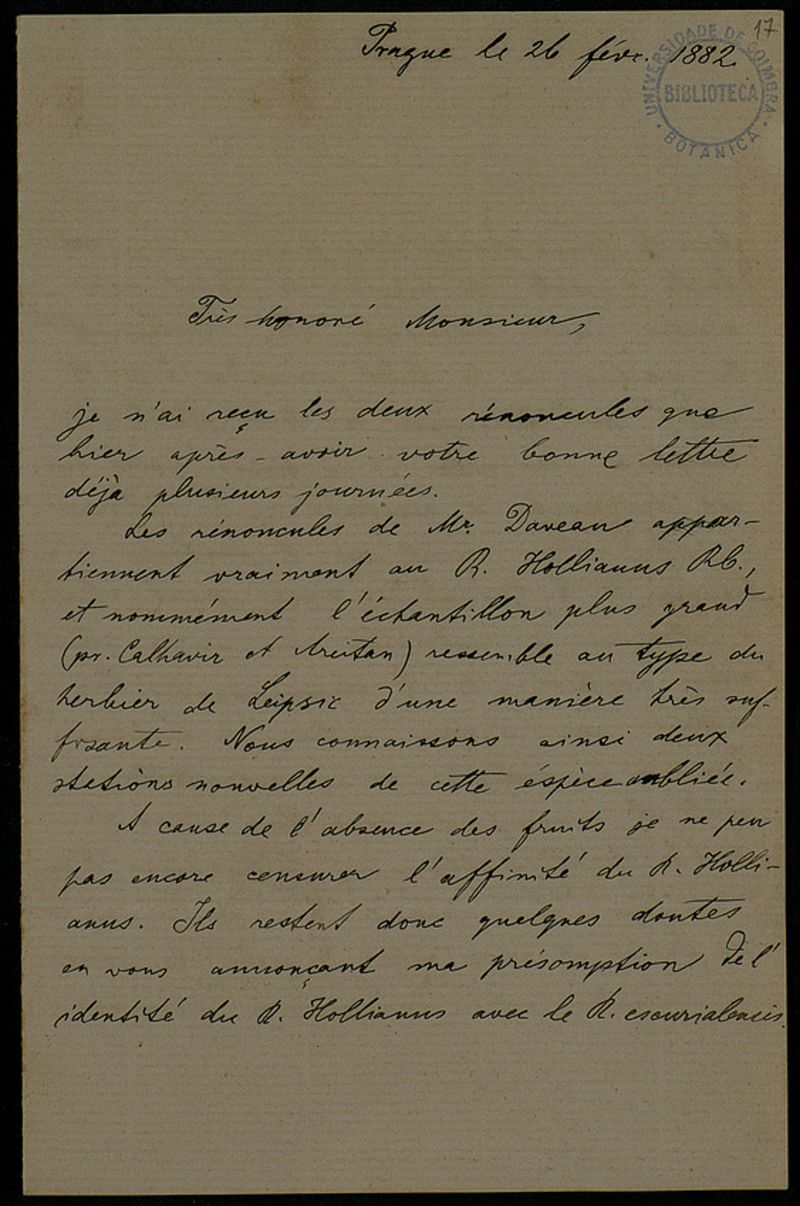 17
Prague le 26 févr. 1882.
UNIVERSIDADE DE COIMBRA
BIBLIOTECA
BOTANICA
Très honoré Monsieur,
je n'ai reçu les deux rénoncules que
hier après-avoir votre bonne lettre
déjà plusieurs journées.
Les rénoncules de Mr. Daveau appar-
tiennent vraiment au R. Hollianus Rb.,
et nommément l'échantillon plus grand
(pr. Calhavir et ) ressemble au type du
herbier de Leipsic d'une manière très suf-
fisante. Nous connaissons ainsi deux
stations nouvelles de cette éspèce oubliée.
A cause de l'absence des fruits je ne peu
pas encore censurer l'affinité du R. Holli-
anus. Ils restent donc quelques doutes
en vous annonçant ma présomption de l'
identité du R. Hollianus avec le R. escurialensis.